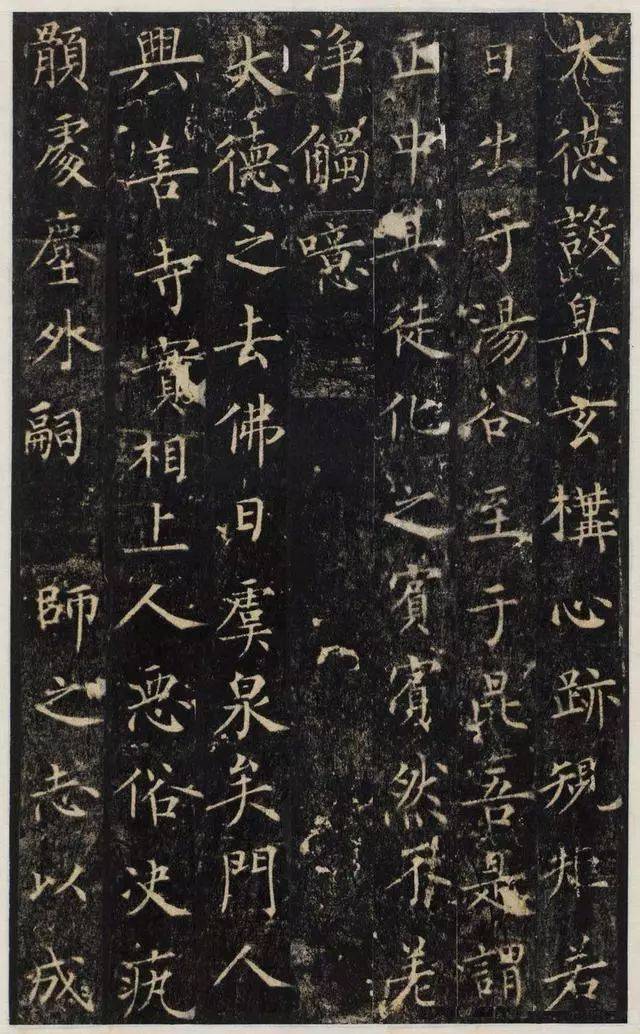 大德設臬玄構心跡規矩若
日出于湯谷至于昆吾是謂
正中其徒化之賓賓然不差
淨觸噫
大德之去佛日虞泉矣門人
興善寺實相上人惡俗決疣
顝處塵外嗣 師之志以成